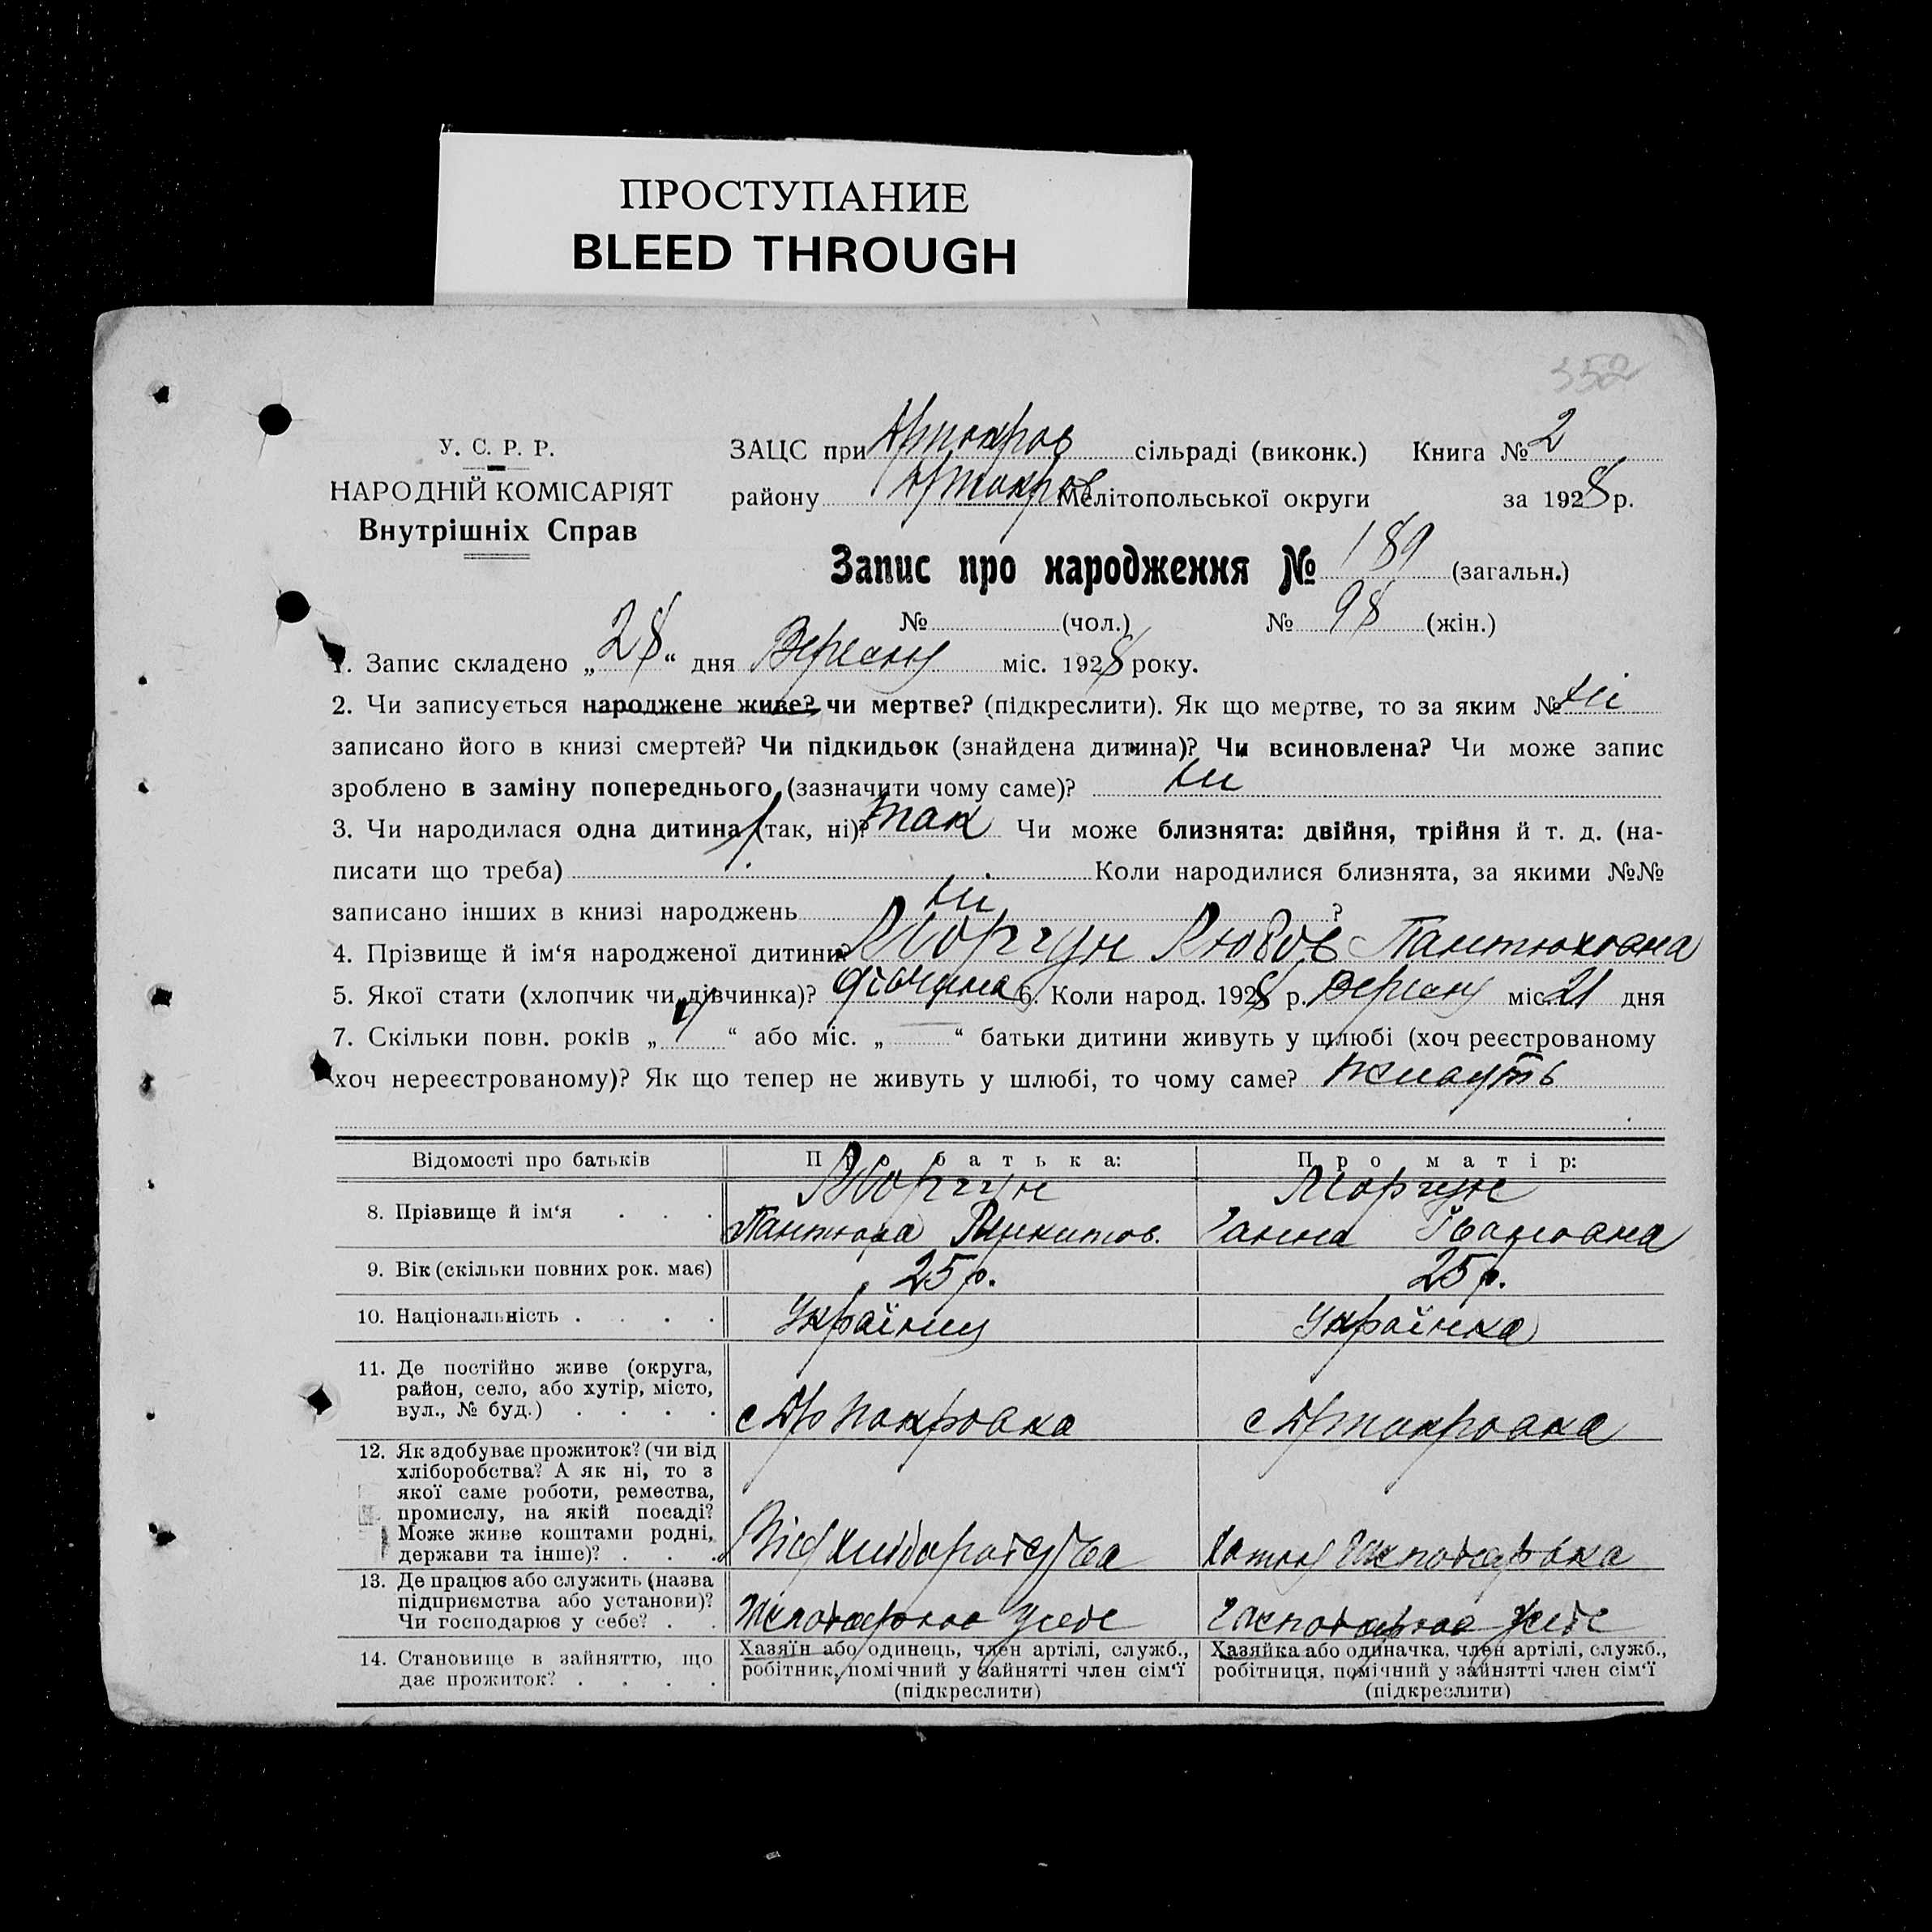 ПРОСТУПАНИЕ
BLEED THROUGH
352
У. С. Р. Р.
НАРОДНІЙ КОМІСАРІЯТ
Внутрішніх Справ
ЗАЦС при сільраді (виконк.) Книга № 2
району Мелітопольської округи за 1928 р.
Запис про народження № 189 (загальн.)
№ (чол.) № 98 (жін.)
1. Запис складено „28“ дня Вересня міс. 1928 року.
2. Чи записується народжене живе? чи мертве? (підкреслити). Як що мертве, то за яким № ні
записано його в книзі смертей? Чи підкидьок (знайдена дитина)? Чи всиновлена? Чи може запис
зроблено в заміну попереднього (зазначити чому саме)? ні
3. Чи народилася одна дитина (так, ні)? так Чи може близнята: двійня, трійня й т. д. (на-
писати що треба) Коли народилися близнята, за якими №№
записано інших в книзі народжень ні ?
4. Прізвище й ім‘я народженої дитини? Моргун Любов Пантюховна
5. Якої стати (хлопчик чи дівчинка)? дівчина 6. Коли народ. 1928 р. Вересня міс. 21 дня
7. Скільки повн. років „ “ або міс. „ “ батьки дитини живуть у шлюбі (хоч реєстрованому
хоч нереєстрованому)? Як що тепер не живуть у шлюбі, то чому саме? живуть
Відомості про батьків Про батька: Про матір:
8. Прізвище й ім‘я . . . Моргун Моргун
Пантюха Микитов. Ганна Івановна
9. Вік (скільки повних рок. має) 25 р. 25 р.
10. Національність . . . . Українец Українка
11. Де постійно живе (округа,
район, село, або хутір, місто,
вул., № буд.) . . . . с Покровка с
12. Як здобуває прожиток? (чи від
хліборобства? А як ні, то з
якої саме роботи, ремества,
промислу, на якій посаді?
Може живе коштами родні,
держави та інше)? . . . Від хліборобства Хатня господарка
13. Де працює або служить (назва
підприємства або установи)?
Чи господарює у себе? . . господарює у себе господарює у себе
14. Становище в зайняттю, що
дає прожиток? . . . .
Хазяїн або одинець, член артілі, служб.,
робітник, помічний у зайнятті член сім‘ї
(підкреслити)
Хазяйка або одиначка, член артілі, служб.,
робітниця, помічний у зайнятті член сім‘ї
(підкреслити)